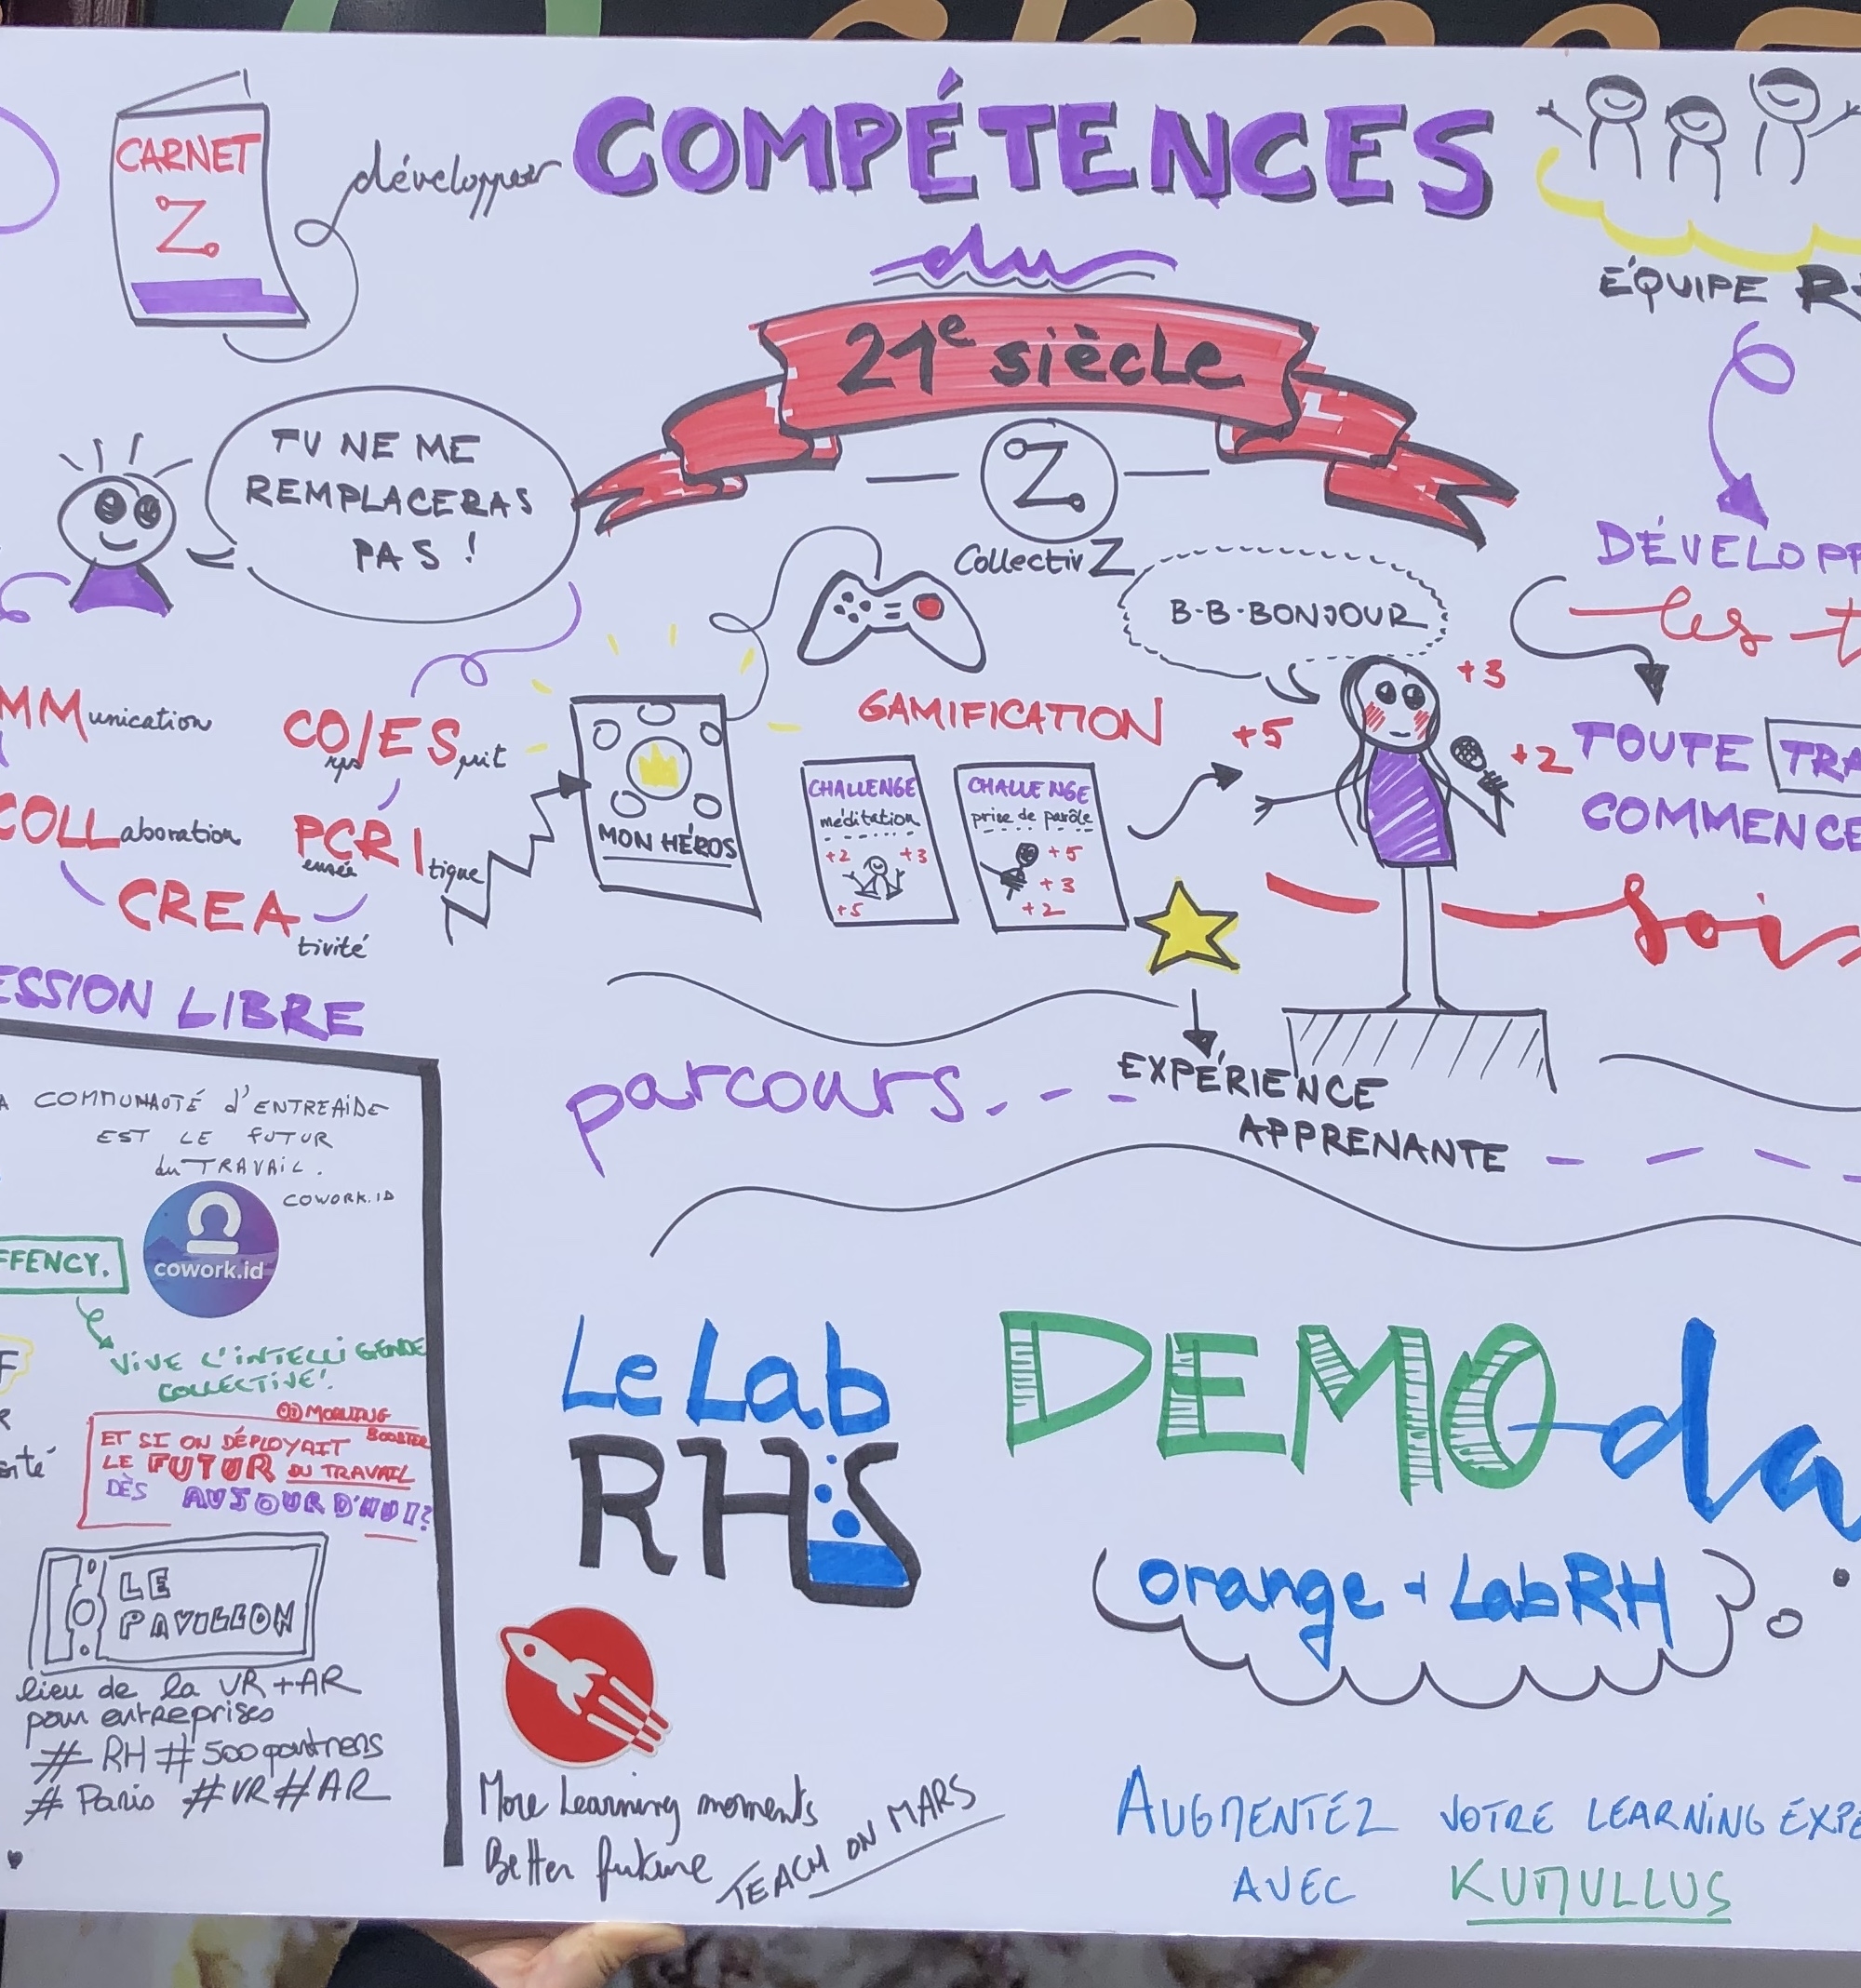 CARNET
Z
développer
COMPÉTENCES
du
21e siècle
Z
CollectivZ
ÉQUIPE
TU NE ME
REMPLACERAS
PAS !
B-B-BONJOUR
DÉVELOPP
les t
MMunication
CO/ESprit
rps
COLLaboration
PCRItique
ensée
CREAtivité
MON HÉROS
GAMIFICATION
CHALLENGE
méditation
+2 +3
+5
CHALLENGE
prise de parole
+5
+3
+2
+5
+3
+2
TOUTE TRA
COMMENCE
soi
ESSION LIBRE
parcours
EXPÉRIENCE
APPRENANTE
A COMMUNAUTÉ d'ENTREAIDE
EST LE FUTUR
du TRAVAIL.
COWORK.ID
cowork.id
FFENCY.
VIVE L'INTELLIGENDE
COLLECTIVE!
BOOSTER
ET SI ON DÉPLOYAIT
LE FUTUR DU TRAVAIL
DÈS AUJOURD'HUI?
LE
PAVILLON
lieu de la VR+AR
pour entreprises
# RH #500partners
# Paris #VR#AR
Le Lab
RHS
DEMO da
orange + LabRH
More Learning moments
Better future
TEACH ON MARS
AUGMENTEZ VOTRE LEARNING EXPE
AVEC KUMULLUS